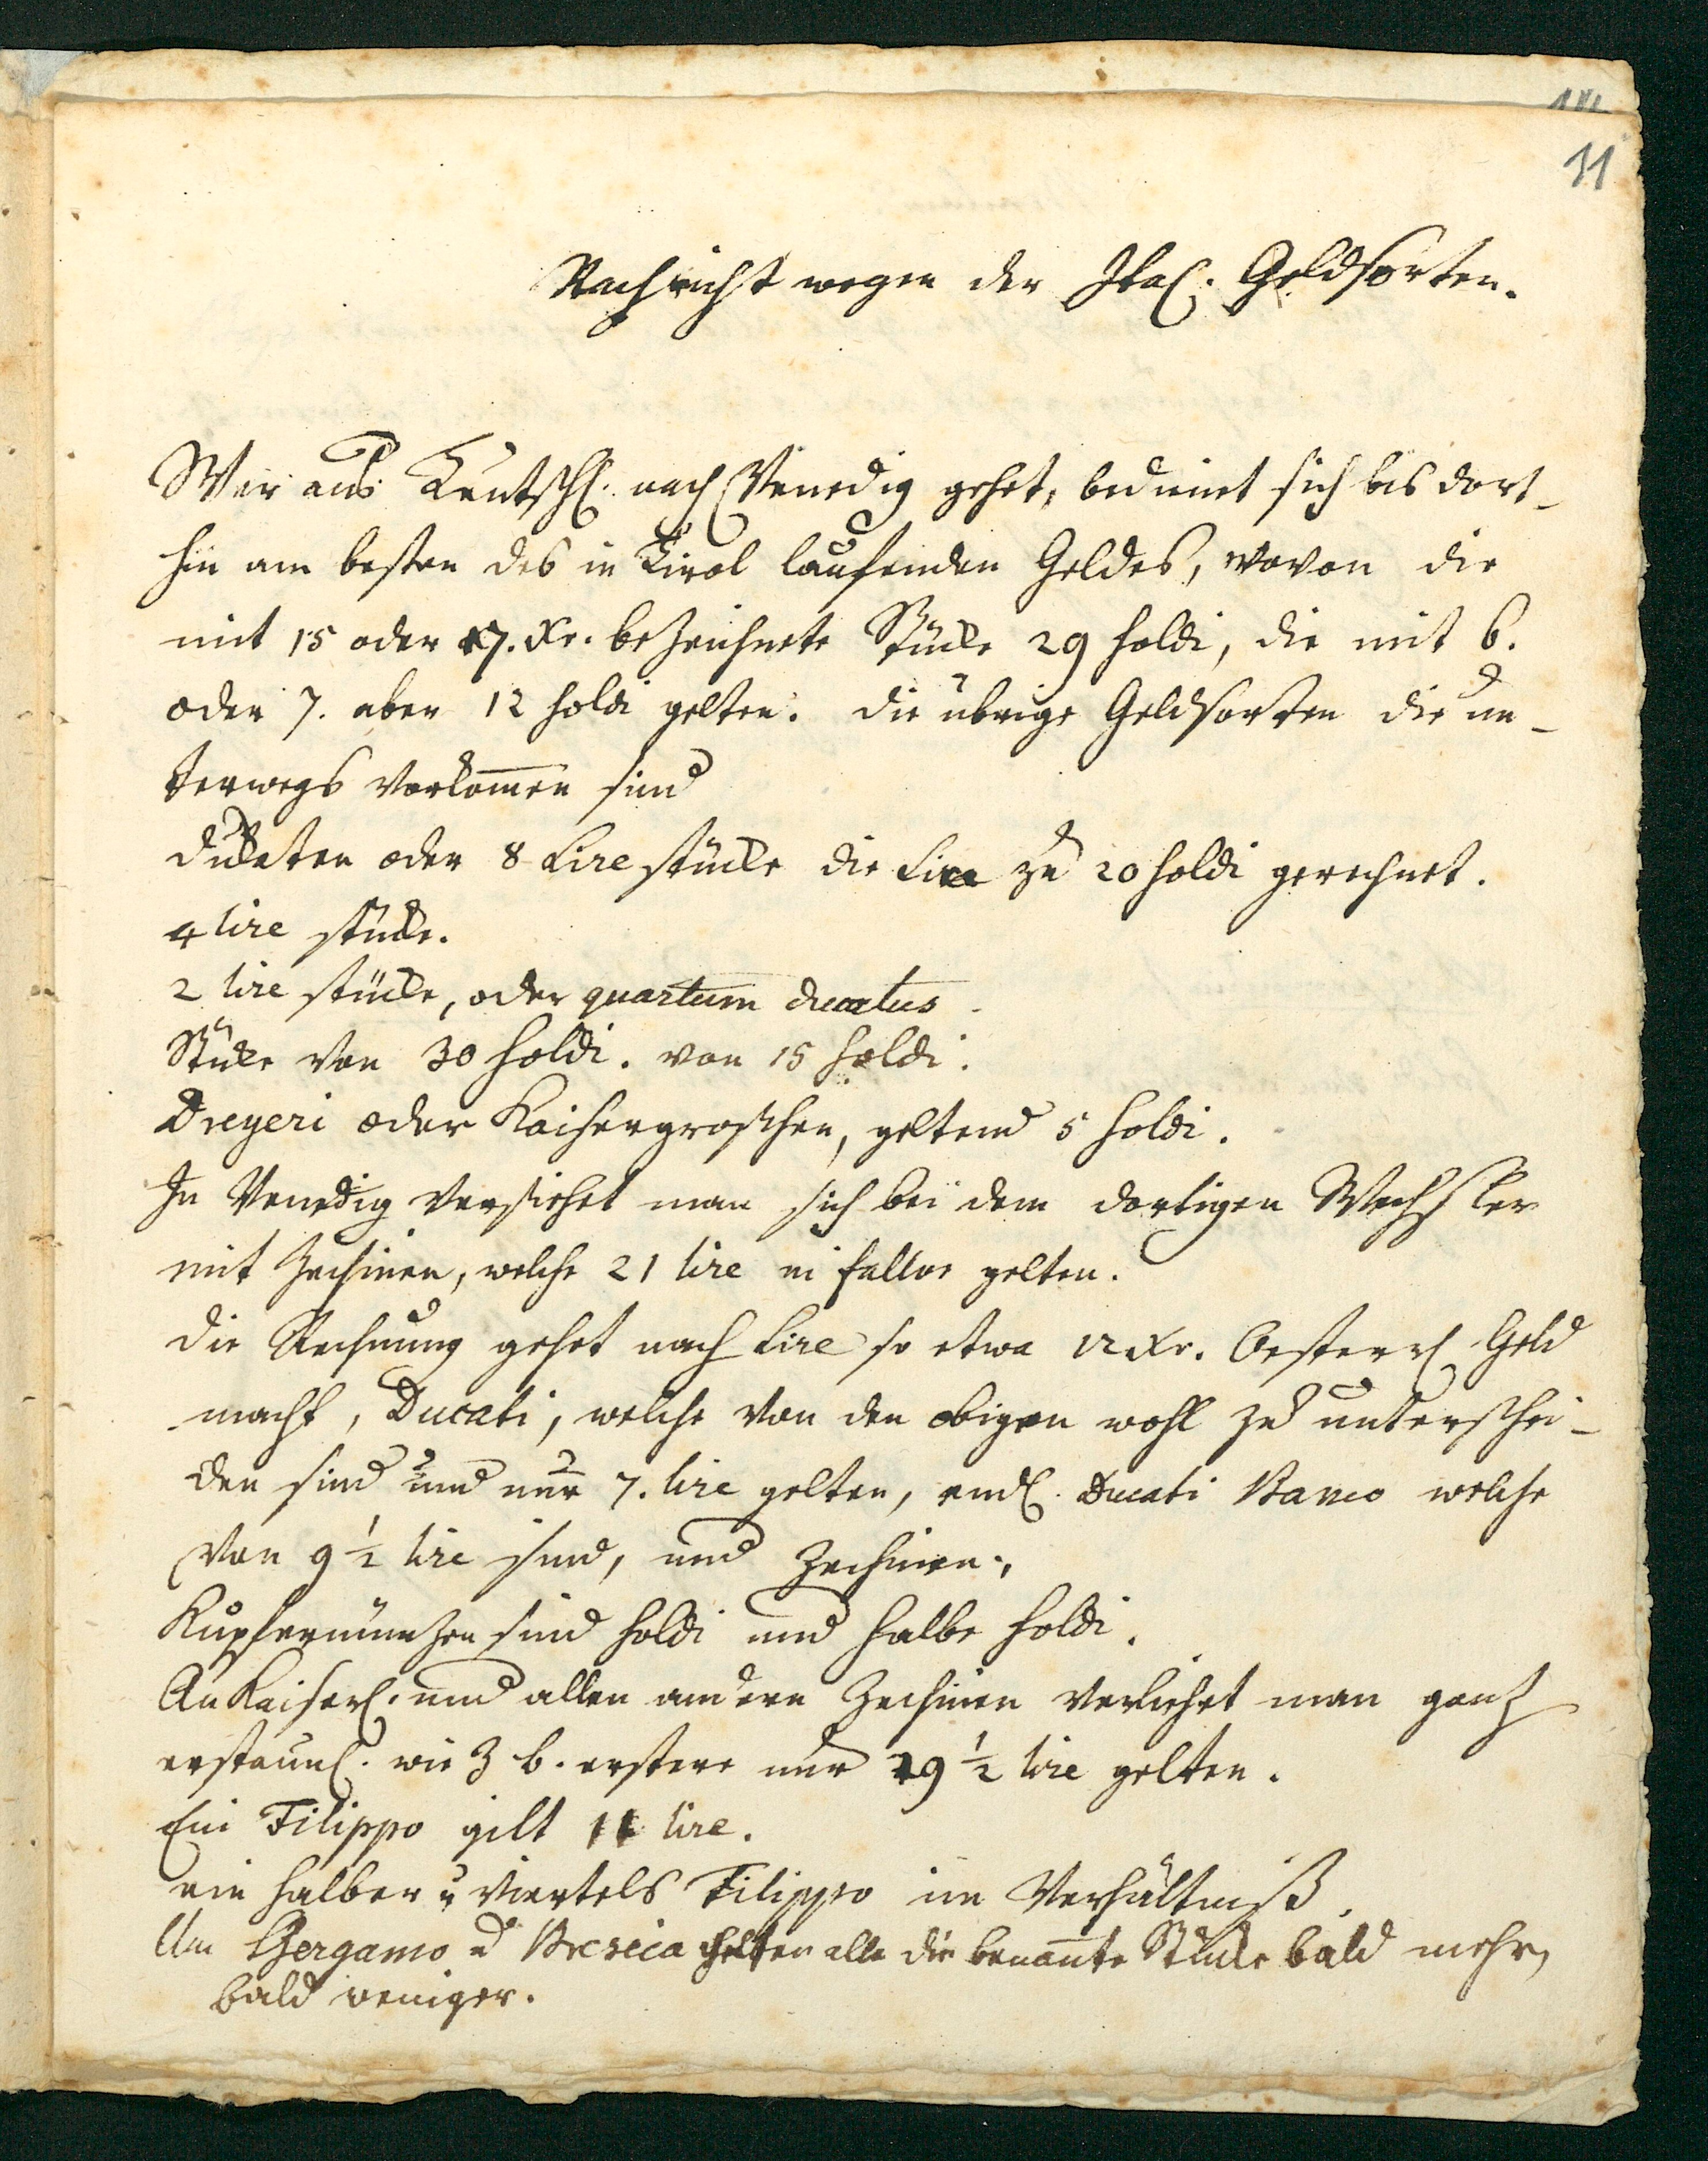 11
Nachricht wegen der Ital. Geldsorten.
Wer aus Teutschl. nach Venedig gehet, bedienet sich bis dort-
hin am besten des in Tirol laufenden Geldes, wovon die
mit 15 oder 17. Xr. bezeichnete Stücke 29 soldi, die mit 6.
oder 7. aber 12 soldi gelten. die übrige Geldsorten die un-
terwegs vorkommen sind
dukaten oder 8 Lire stücke die Lire zu 20 soldi gerechnet.
4 lire stüke.
2 lire stücke, oder quartum ducatus.
Stüke von 30 soldi. von 15 soldi.
Dreyeri oder Kaisergroschen, geltend 5 soldi.
In Venedig versiehet man sich bei dem dortigen Wechsler
mit Zechinen, welche 21 lire ni fallor gelten.
die Rechnung gehet nach Lire so etwa 12 Xr. Oesterr. Geld
macht, Ducati, welche von den obigen wohl zu unterschei-
den sind und nur 7. lire gelten, endl. Ducati Banco welche
von 9 1/2 lire sind, und Zechinen.
Kupfermünzen sind soldi und halbe soldi.
An Kaiserl. und allen andern Zechinen verliehrt man ganz
erstaunl. wie z b. erstere nur 19 1/2 lire gelten.
Ein Filippo gilt 11 lire.
ein halber u viertels Filippo im Verhältniß.
Um Bergamo u Brescia gelten alle die benannte Stücke bald mehr,
bald weniger.